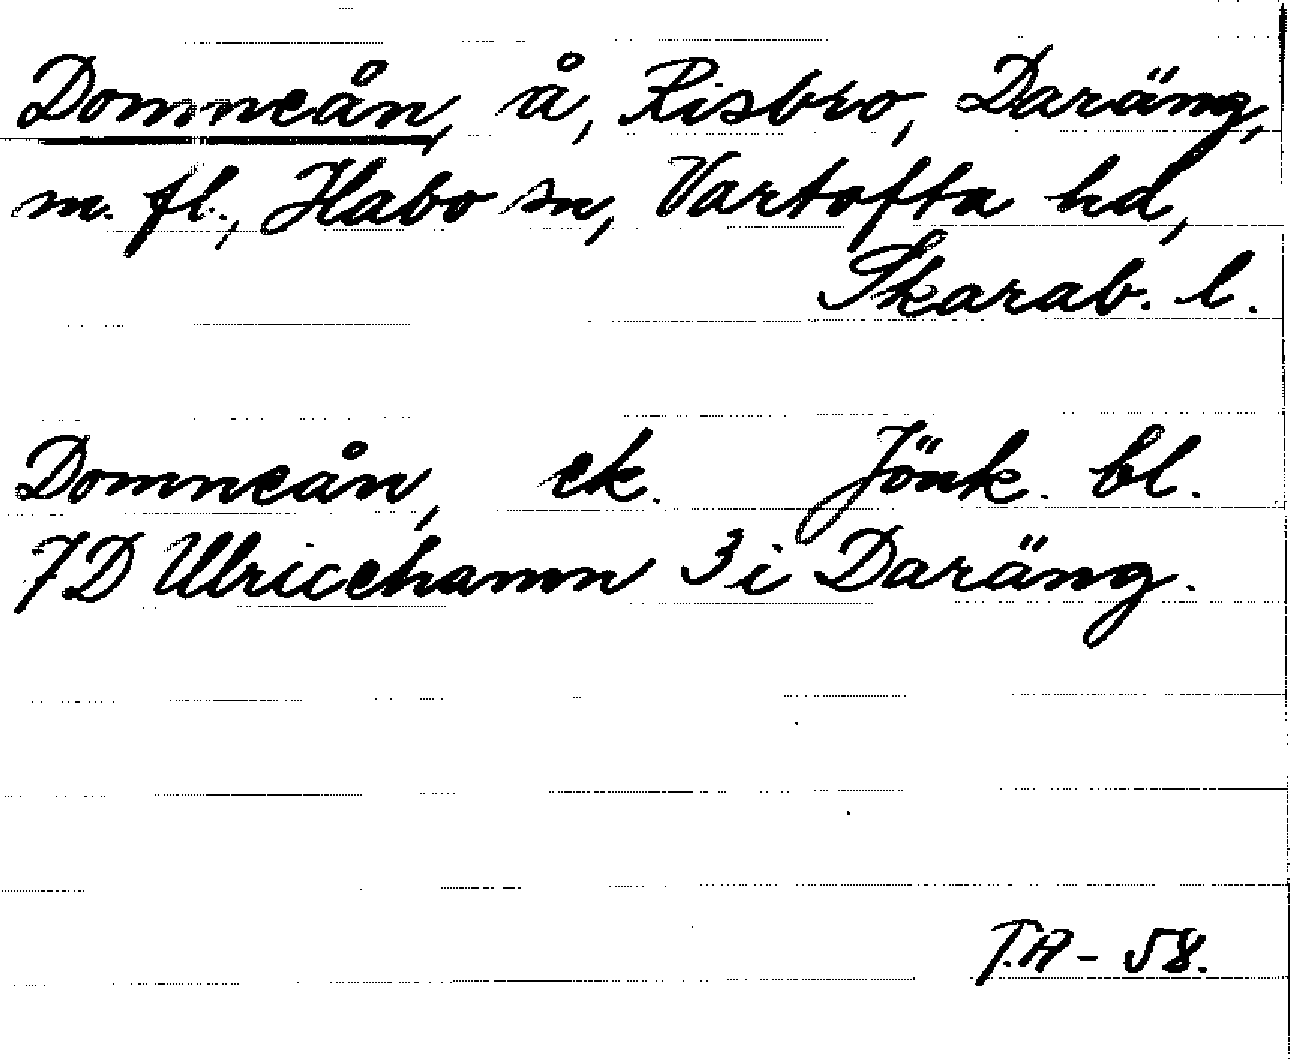 Domneån, å, Risbro, Daräng,
m. fl., Habo sn, Vartofta hd,
Skarab. l.
Domneån, ek. Jönk. bl.
7D Ulricehamn 3i Daräng.
T.A - 58.